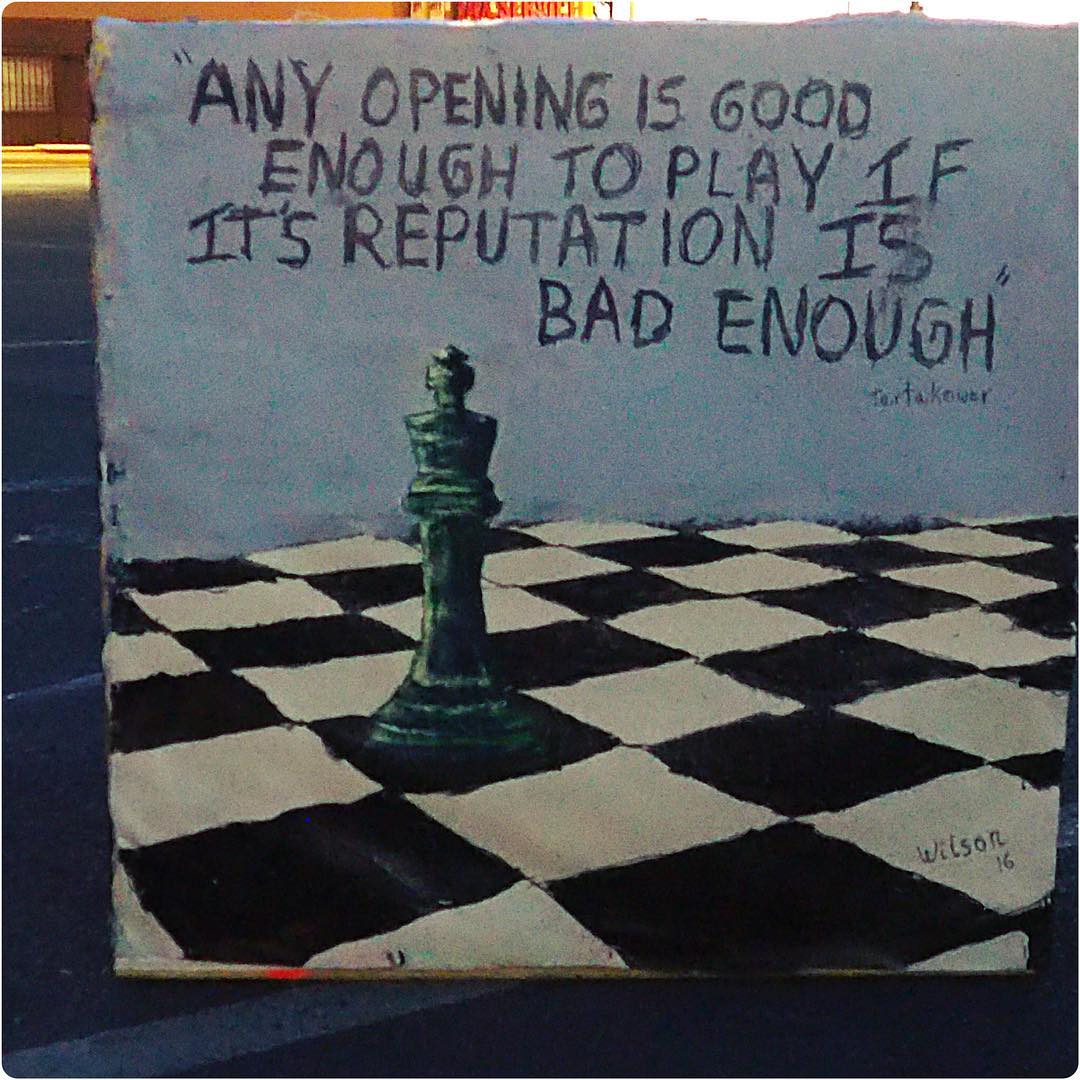 "ANY OPENING IS GOOD
ENOUGH TO PLAY IF
IT'S REPUTATION IS
BAD ENOUGH"
Tartakower
Wilson
16